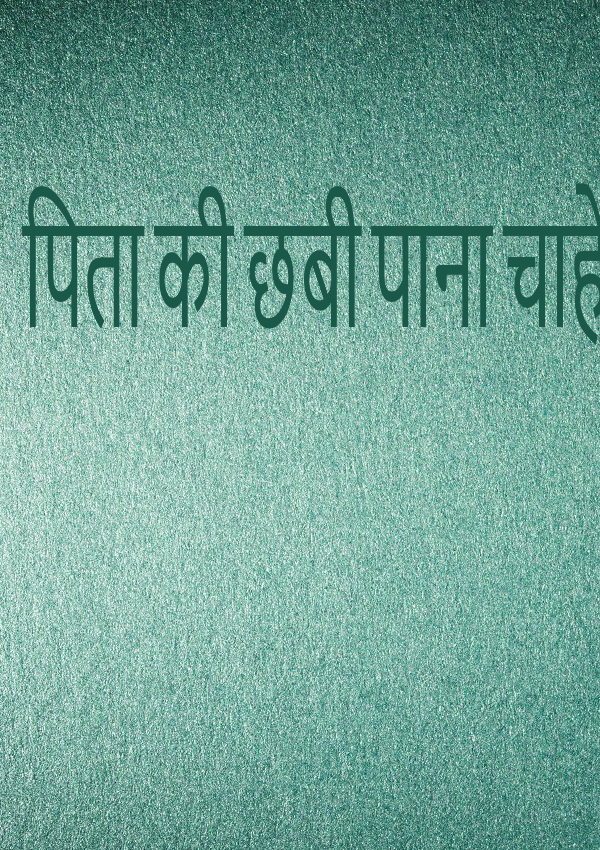 पिता की छबी पाना चाहे